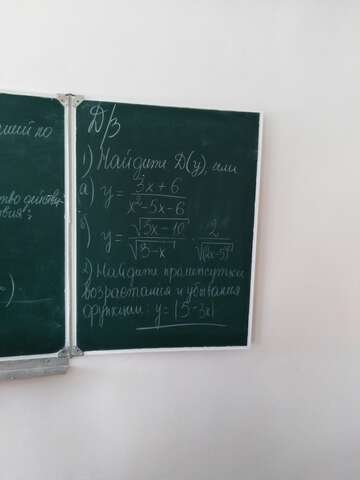 ший по
ство действ
ствия:
)
Д/з
1) Найдите D(y), если
а) y = 3x+6 / x²-5x-6
б) y = √3x-10 / √3-x · 2 / √(2x-5)²
2) Найдите промежутки
возрастания и убывания
функции: y = |5-3x|